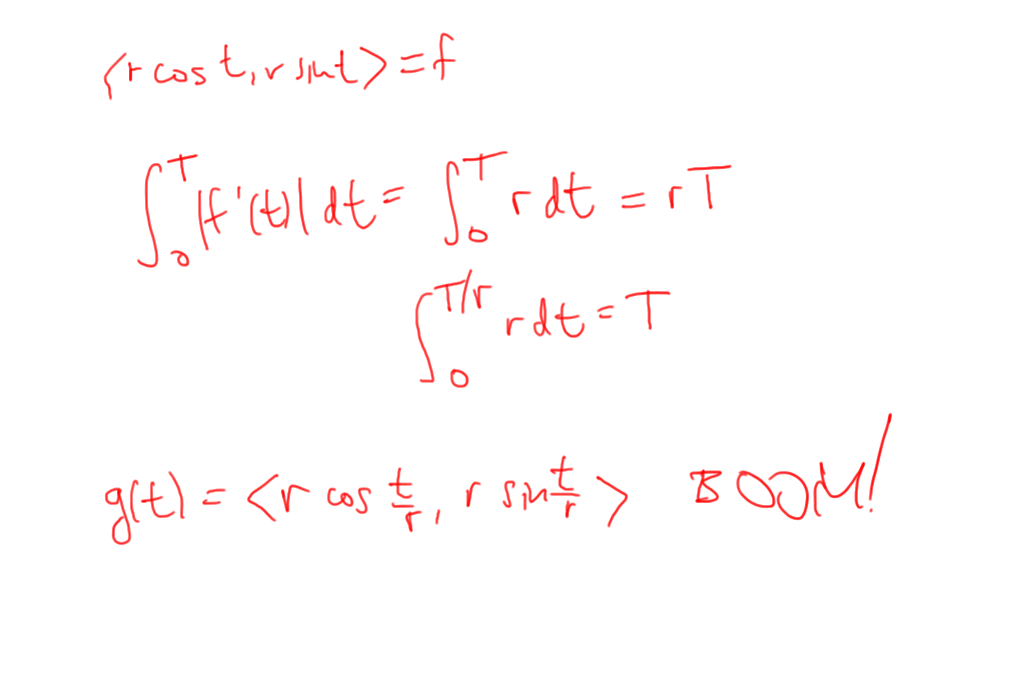 ⟨r cos t, r sin t⟩ = f
∫₀ᵀ |f'(t)| dt = ∫₀ᵀ r dt = rT
∫₀^{T/r} r dt = T
g(t) = ⟨r cos t/r, r sin t/r⟩ BOOM!